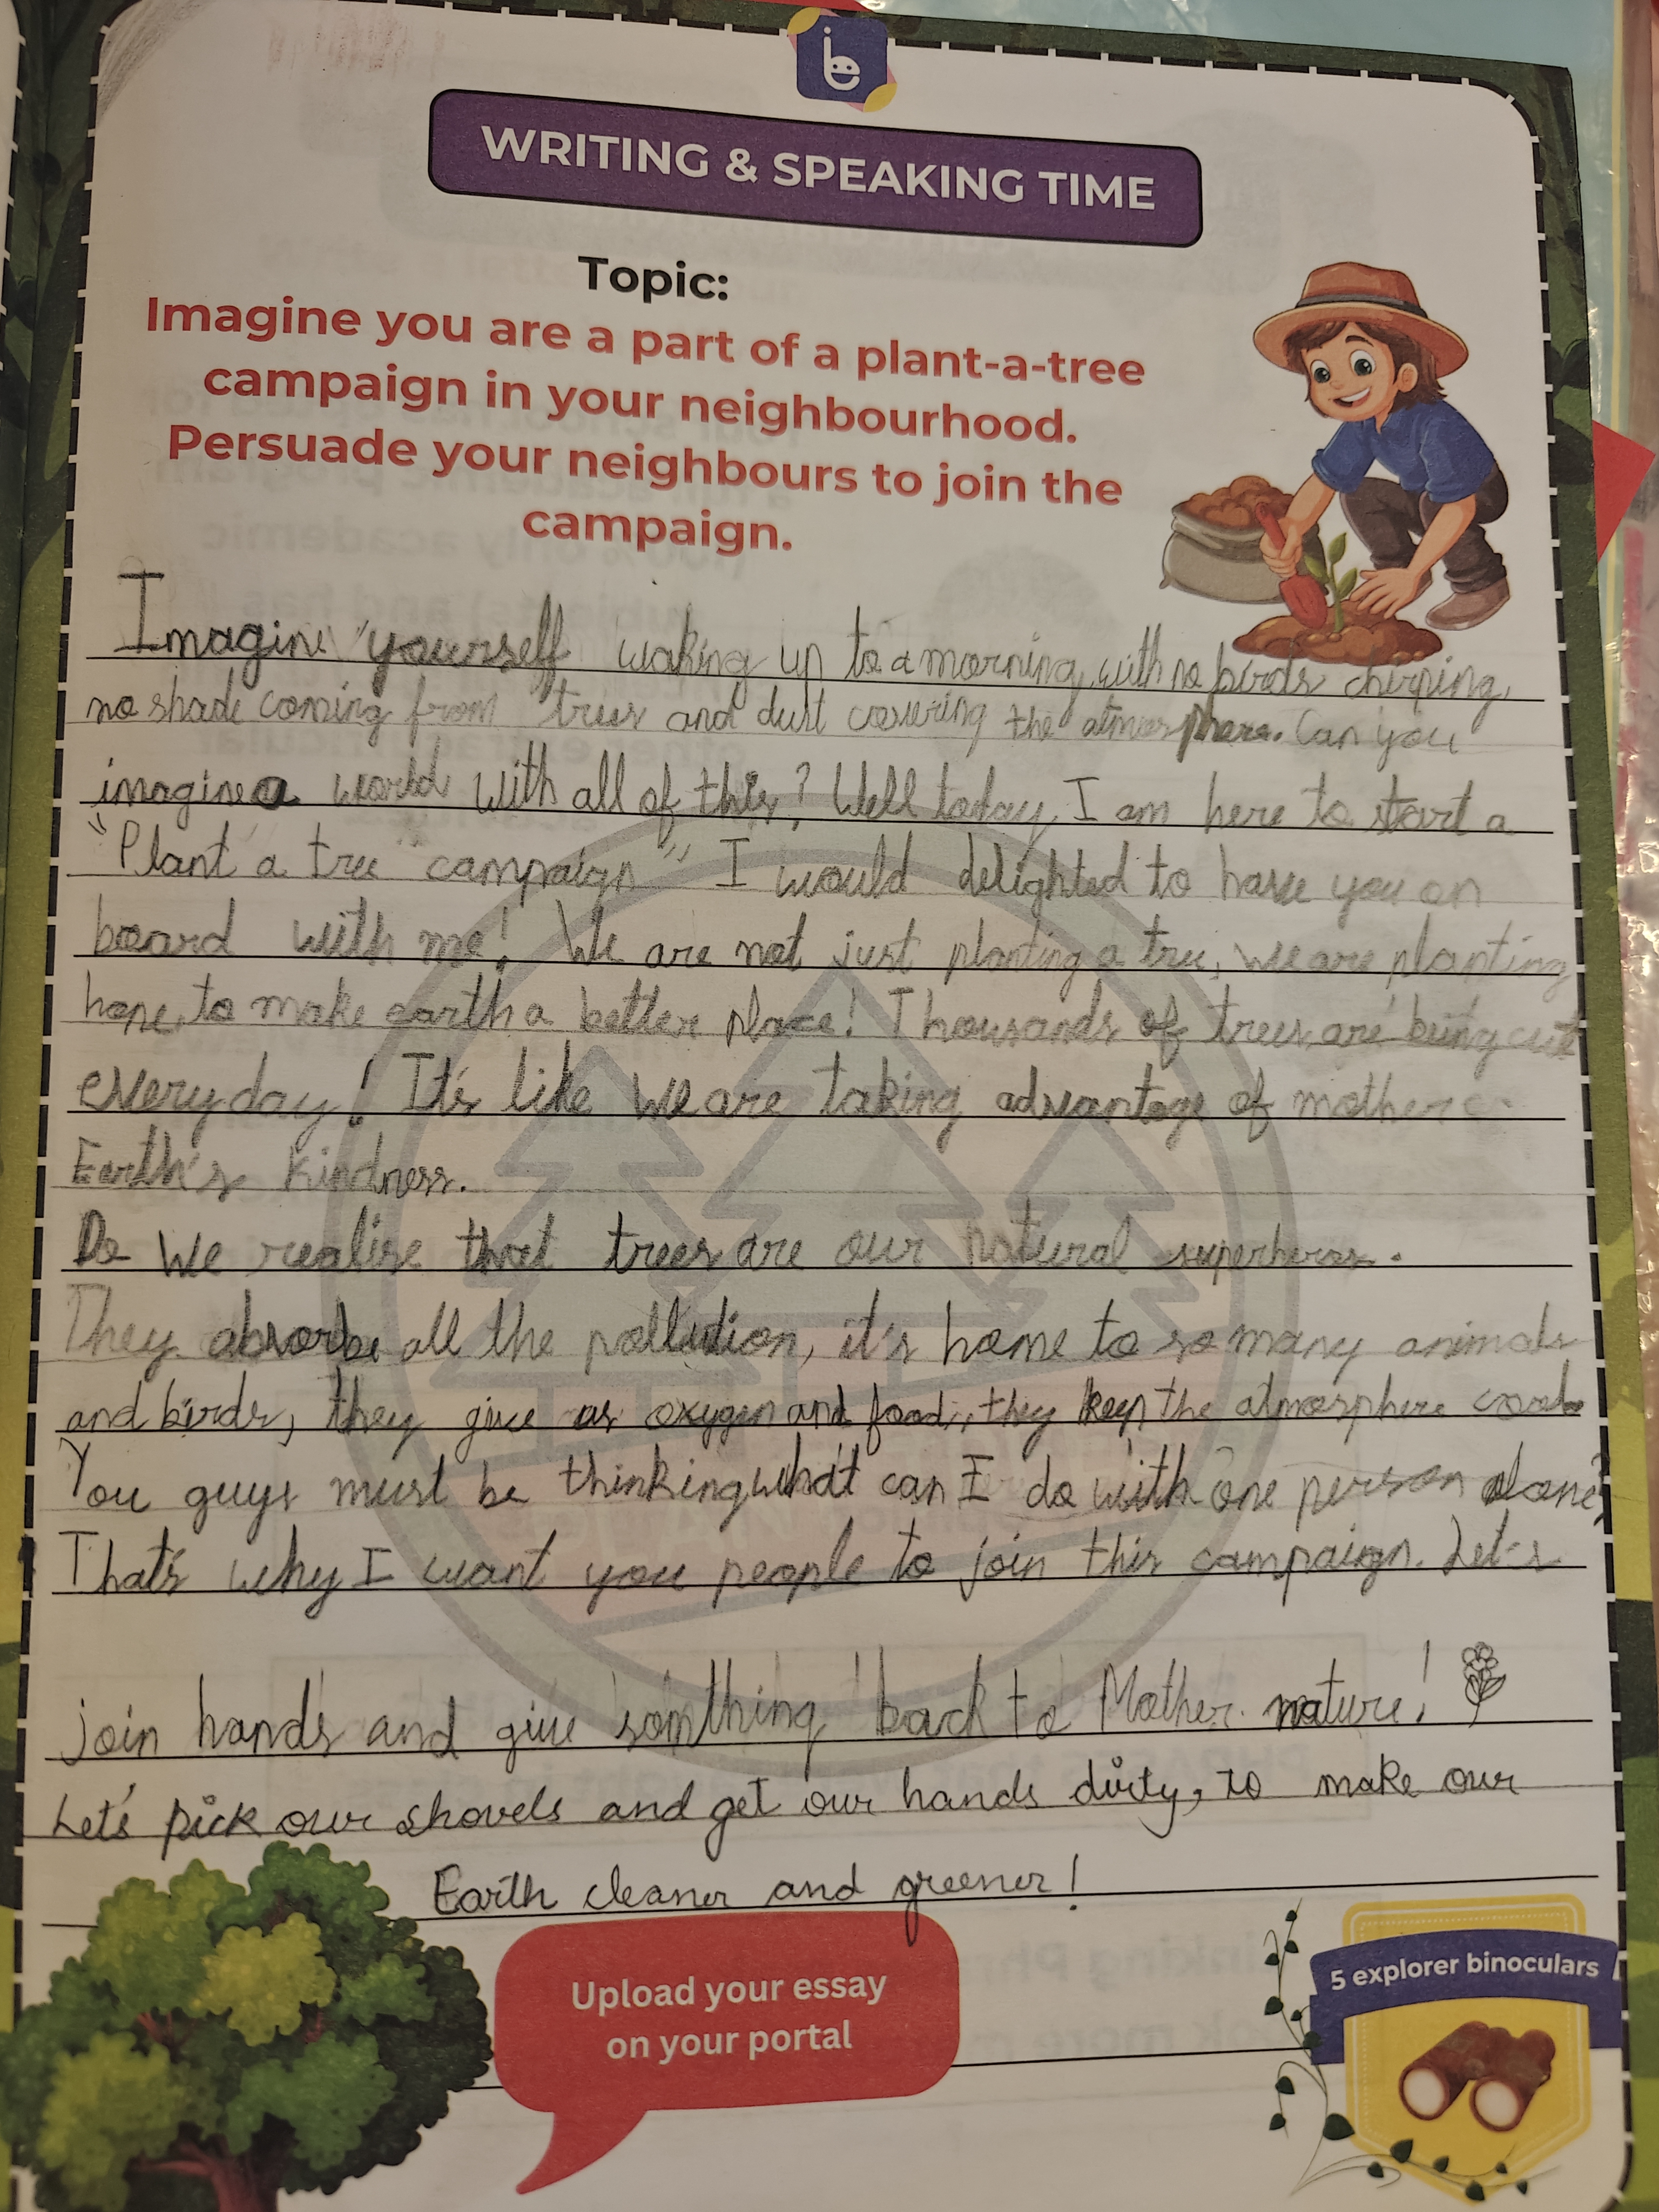 WRITING & SPEAKING TIME
Topic:
Imagine you are a part of a plant-a-tree
campaign in your neighbourhood.
Persuade your neighbours to join the
campaign.
Imagine yourself waking up to a morning, with no birds chirping,
no shade coming from trees and dust covering the atmosphere. Can you
imagine a world with all of this? Well today, I am here to start a
"Plant a tree campaign" I would delighted to have you on
board with me! We are not just planting a tree, we are planting
hope, to make earth a better place! Thousands of trees are being cut
everyday! It's like we are taking advantage of mother
Earth's kindness.
Do we realise that trees are our natural superheroes.
They absorbe all the pollution, it's home to so many animals
and birds, they give us oxygen and food, they keep the atmosphere
You guys must be thinking what can I do with one person alone?
That's why I want you people to join this campaign. Let's
join hands and give somthing back to Mother nature!
Let's pick our shovels and get our hands dirty, to make our
Earth cleaner and greener!
Upload your essay
on your portal
5 explorer binoculars